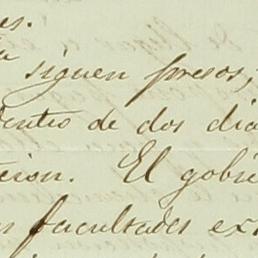 es.
siguen presos,
dentro de dos dia
cion. El gobi
facultades ex